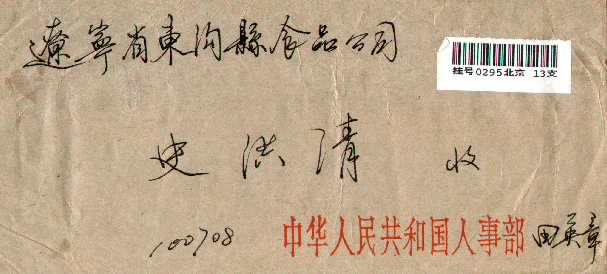 遼寧省東沟縣食品公司
挂号0295北京 13支
史洪清 收
100708 中华人民共和国人事部 田英章